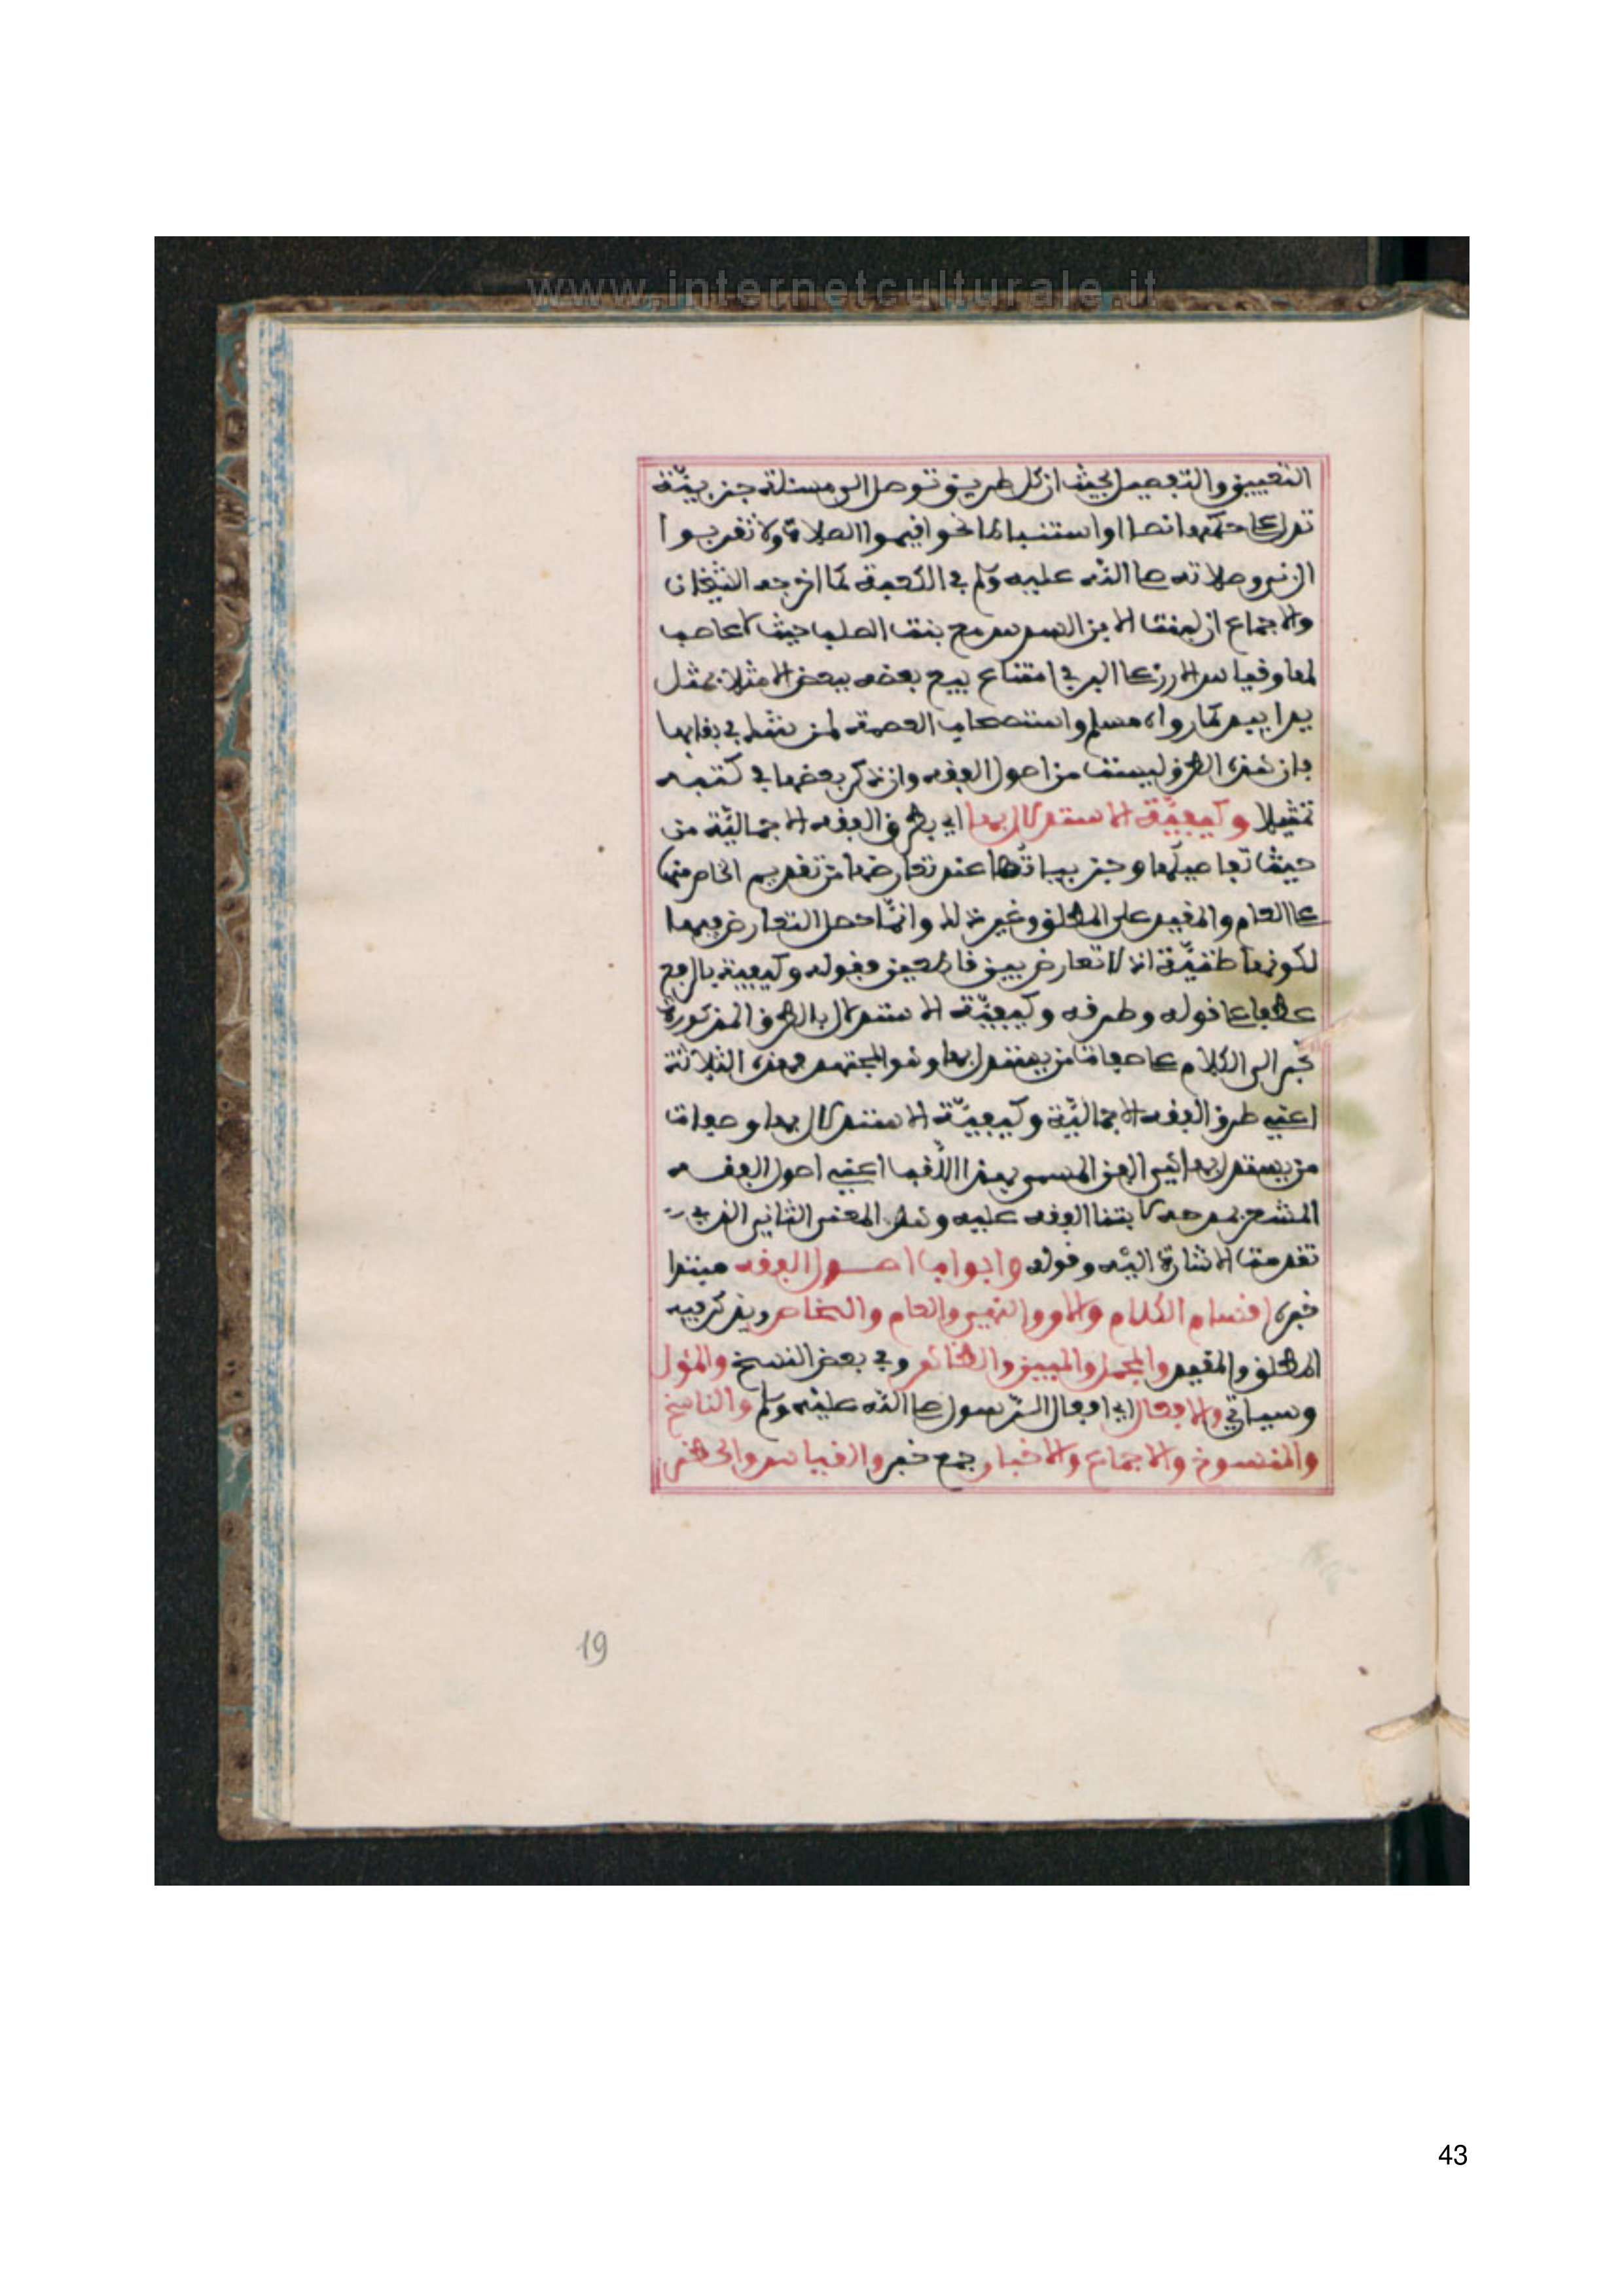 www.internetculturale.it
التعيين والتفصيل بحيث ان كل طريق توصل الى مسئلة جزييّة
تدل على حكمها نصا او استنباطا نحو اقيموا الصلاة ولا تقربوا
الزنى وصلاته صلى الله عليه وسلم في الكعبة كما اخرجه الشيخان
والاجماع ان لبنت الابن السدس مع بنت الصلب حيث لا عاصب
لها وقياس الارز على البر في امتناع بيع بعضه ببعض الا مثلا بمثل
يدا بيد كما رواه مسلم واستصحاب العصمة لمن شك في بقايها
فان هذه الطرق ليست من اصول الفقه وان ذكر بعضها في كتبه
تمثيلا وكيفيّة الاستدلال بها اي بطرق الفقه الاجماليّة من
حيث تفاصيلها وجزيياتها عند تعارضها من تقديم الخاص منها
على العام والمقيد على المطلق وغير ذلك وانما حصل التعارض فيها
لكونها ظنيّة اذ لا تعارض بين قاطعين فقوله وكيفية بالرفع
عطفا على قوله وطرقه وكيفيّة الاستدلال بالطرق المذكورة
تجر الى الكلام على صفات من يستدل بها وهو المجتهد فهذه الثلاثة
اعني طرق الفقه الاجماليّة وكيفيّة الاستدلال بها وصفات
من يستدل بها هي الفن المسمى بهذا اللقب اعني اصول الفقه
المشعر بمدحه لابتنا الفقه عليه وهذا المعنى الثاني الذي
تقدمت الاشارة اليه وقوله وابواب اصول الفقه مبتدا
خبره اقسام الكلام والامر والنهي والعام والخاص ويذكر فيه
المطلق والمقيد والمجمل والمبين والظاهر وفي بعض النسخ والمئول
وسياتي والافعال اي افعال الرسول صلى الله عليه وسلم والناسخ
والمنسوخ والاجماع والاخبار جمع خبر والقياس والحظر
19
43